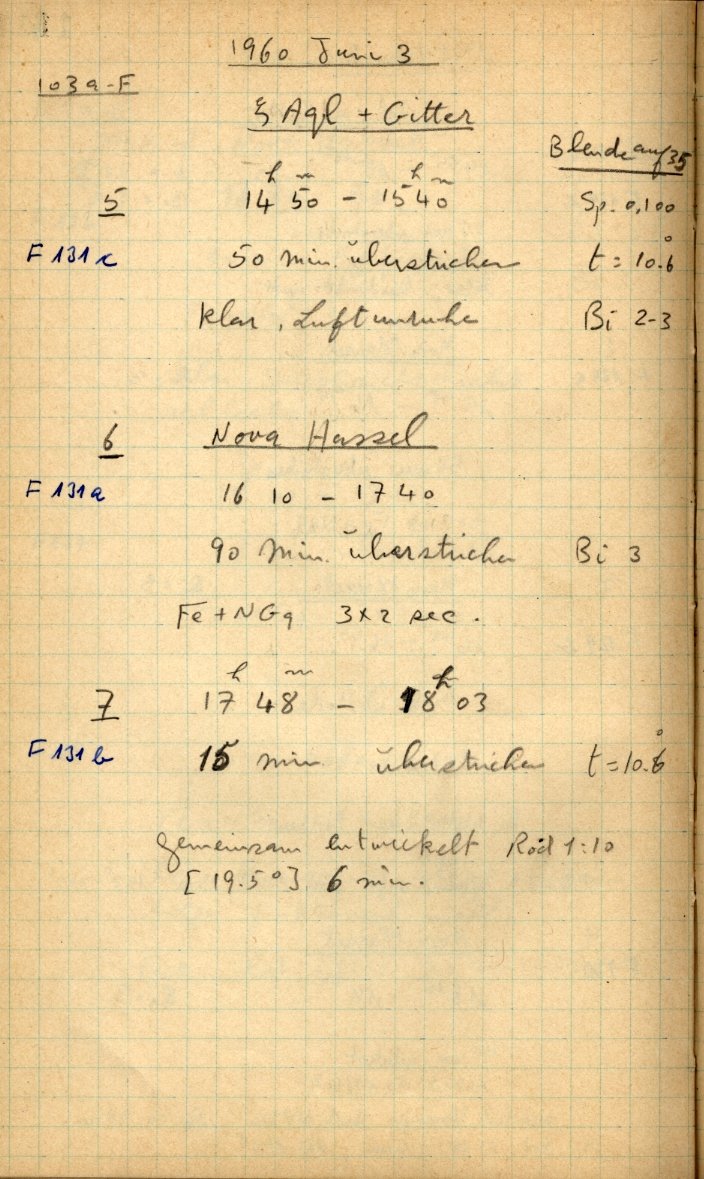 1960 Juni 3
103a-F
ξ Aql + Gitter
Blende auf 35
5 14h 50m - 15h 40m Sp. 0,100
F 131c 50 min. überstrichen t = 10.°6
klar, Luftunruhe Bi 2-3
6 Nova Hassel
F 131a 16 10 - 17 40
90 min. überstrichen Bi 3
Fe + NGq 3x2 sec.
7 17h 48m - 18h 03
F 131b 15 min überstrichen t = 10.°6
gemeinsam entwickelt Rod 1:10
[19.5°] 6 min.